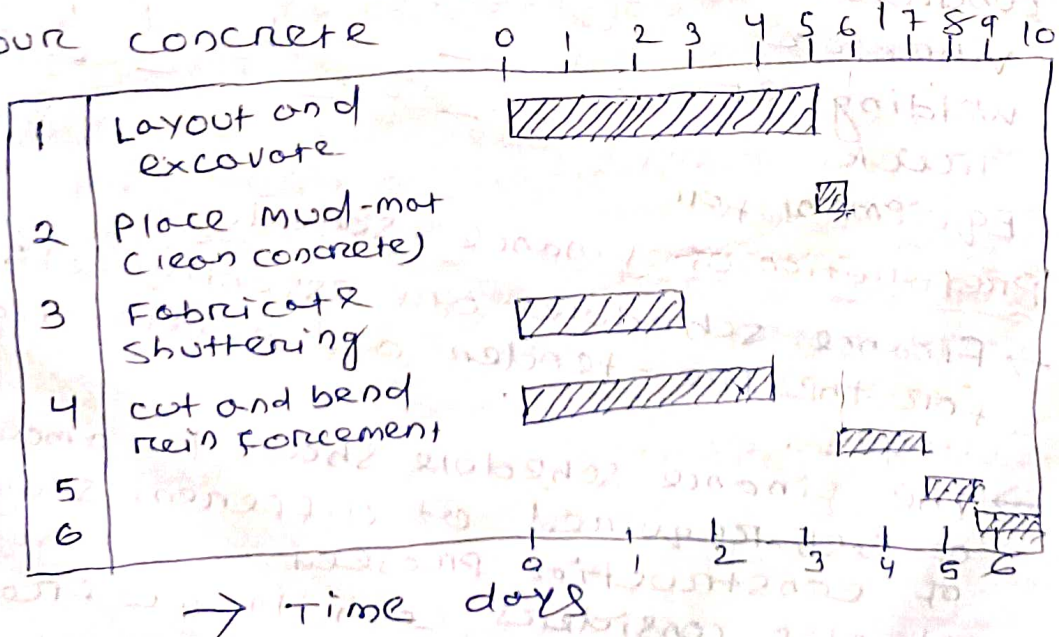 concrete
0 1 2 3 4 5 6 7 8 9 10
1 Layout and
excavate
2 Place mud-mat
(lean concrete)
3 Fabricate
shuttering
4 cut and bend
reinforcement
5
6
0 1 2 3 4 5 6
→ Time days